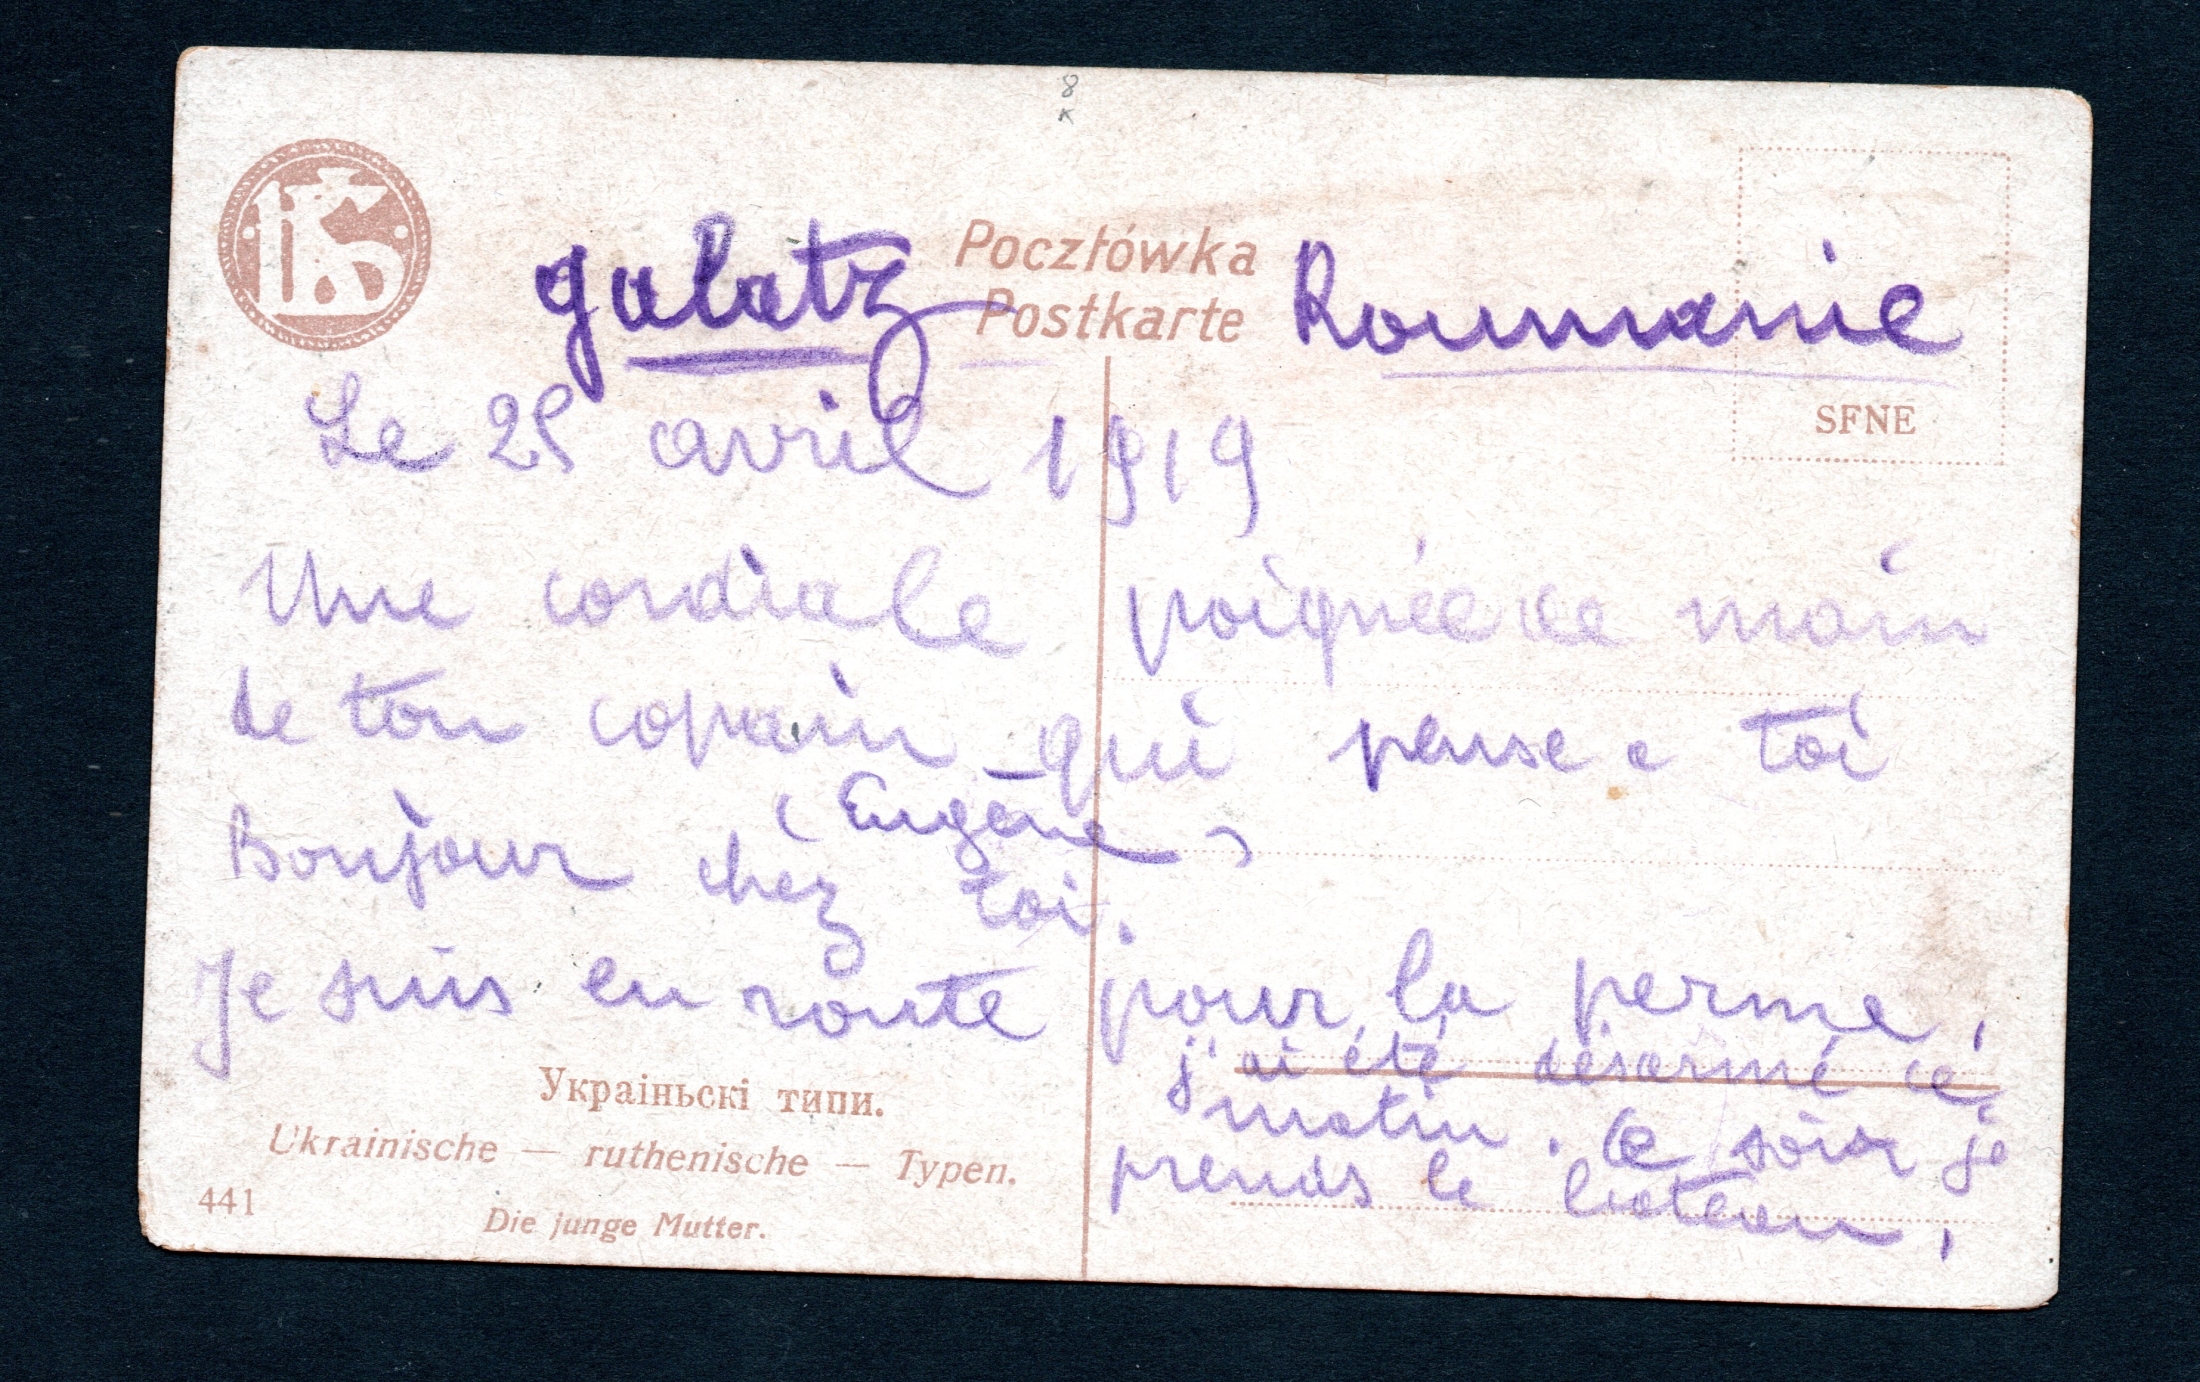 8
Poczłówka
Postkarte
galatz Roumanie
SFNE
Le 25 avril 1919
Une cordiale poignée de main
de ton copain qui pense a toi
( Eugène )
Bonjour chez toi.
Je suis en route pour la perme,
j'ai été désarmé ce
matin. Ce soir je
prends le bateau,
Україньскі типи.
Ukrainische — ruthenische — Typen.
441
Die junge Mutter.